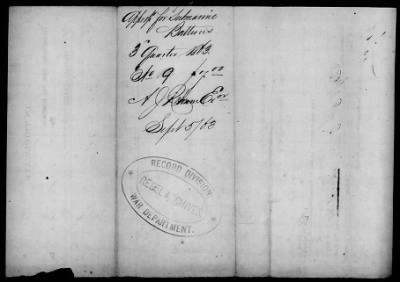 Appts for Submarine
Batteries
3d Quarter 1863.
No 9
Sept 5/63
RECORD DIVISION
REBEL ARCHIVES
WAR DEPARTMENT.